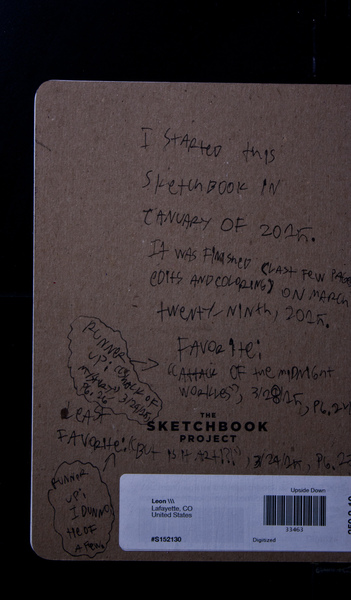 I STARTED this
SketchBOOK IN
JANUARY OF 2015.
IT WAS FINISHED (LAST FEW PAGE
EDITS AND COLORING) ON MARCH
twenty-NINTH, 2015.
FAVORITE:
"ATTACK OF the MIDNIGHT
WORKLES", 3/28/15, PG. 
RUNNER
UP:
OF
3/29/15,
THE
SKETCHBOOK
PROJECT
LEAST
FAVORITE: "BUT IS IT ART?!?", 3/24/15, PG. 
RUNNER
UP:
I DUNNO
A FEW
Upside Down
Leon \\\
Lafayette, CO
United States
33463
#S152130
Digitized